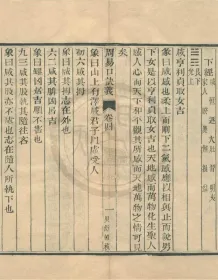 下經
咸亨利貞取女吉
彖曰咸感也柔上而剛下二氣感應以相與止而說男
下女是以亨利貞取女吉也天地感而萬物化生聖人
感人心而天下和平觀其所感而天地萬物之情可見
矣
周易口訣義 卷四 一
象曰山上有澤咸君子以虛受人
初六咸其拇
象曰咸其拇志在外也
六二咸其腓凶居吉
象曰雖凶居吉順不害也
九三咸其股執其隨往吝
象曰咸其股亦不處也志在隨人所執下也